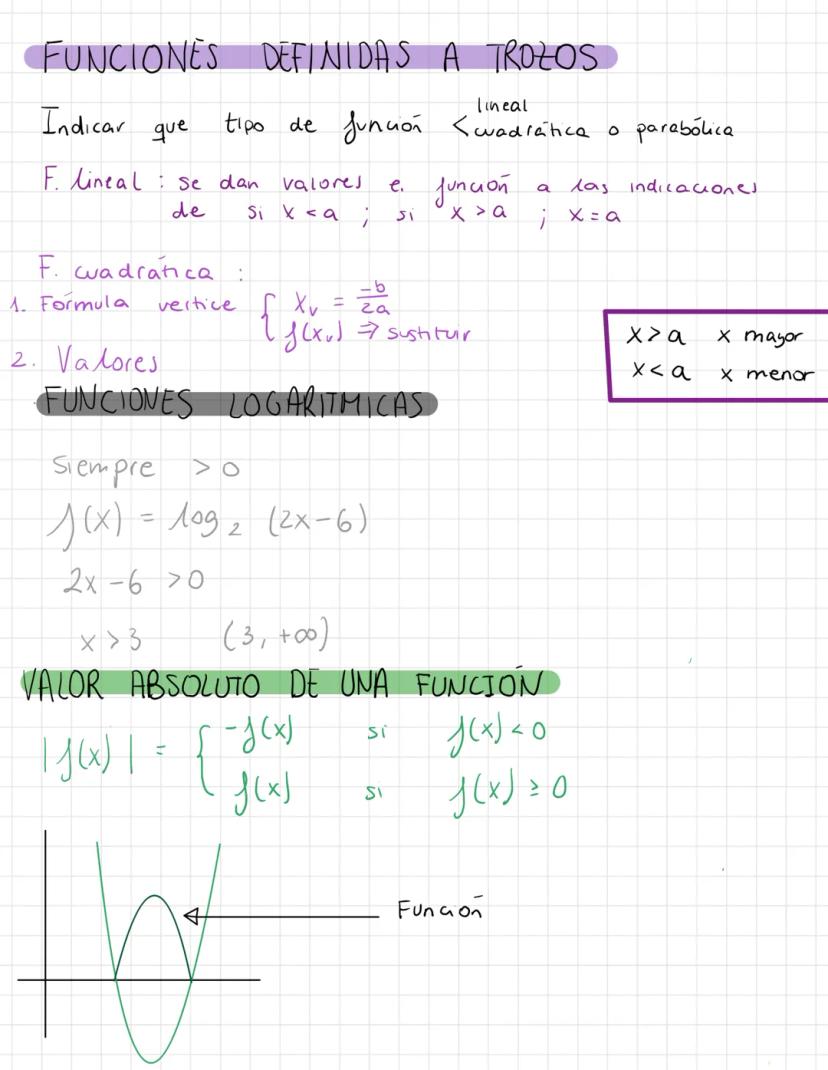 FUNCIONES DEFINIDAS A TROZOS
Indicar que tipo de función < lineal
cuadrática o parabólica
F. lineal : se dan valores e. función a las indicaciones
de si x < a ; si x > a ; x = a
F. cuadrática :
1. Fórmula vertice { Xv = -b/2a
f(xv) => sustituir
2. Valores
x > a x mayor
x < a x menor
FUNCIONES LOGARITMICAS
Siempre > 0
f(x) = log₂ (2x-6)
2x - 6 > 0
x > 3 (3, +∞)
VALOR ABSOLUTO DE UNA FUNCIÓN
|f(x)| = { -f(x) si f(x) < 0
f(x) si f(x) ≥ 0
Función